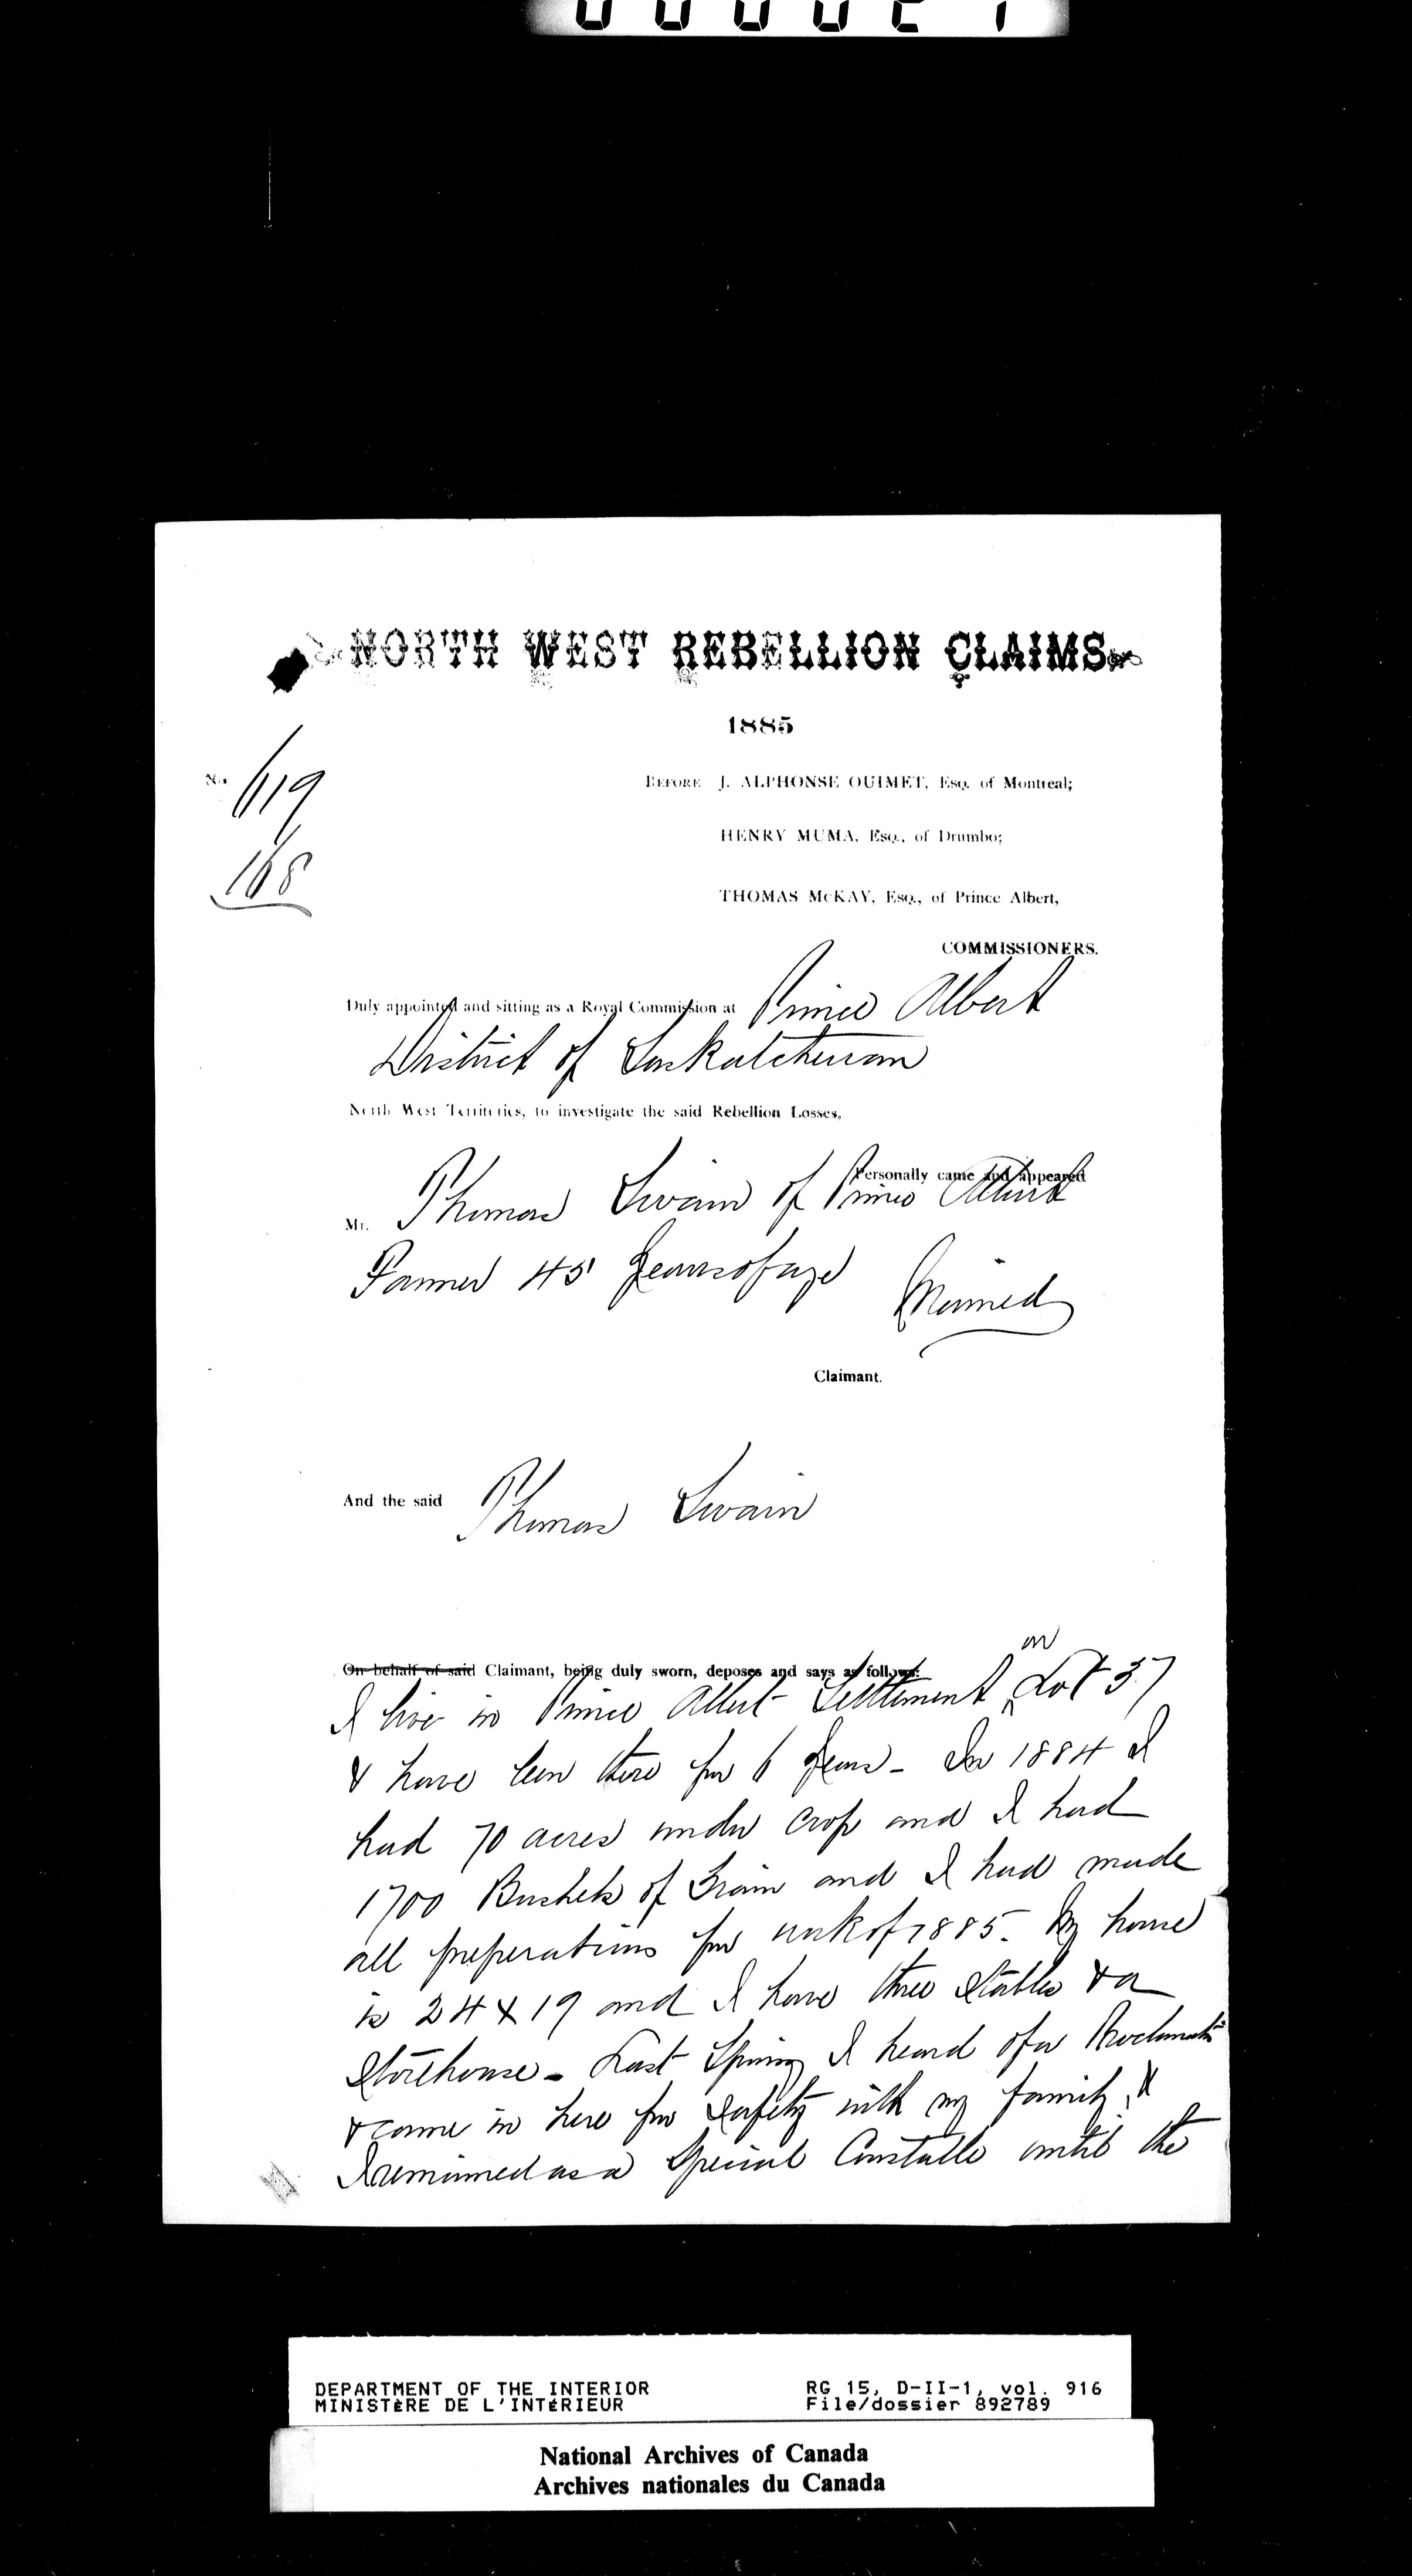 NORTH WEST REBELLION CLAIMS.
1885
No. 619
168
BEFORE J. ALPHONSE OUIMET, Esq. of Montreal;
HENRY MUMA, Esq., of Drumbo;
THOMAS McKAY, Esq., of Prince Albert,
COMMISSIONERS.
Duly appointed and sitting as a Royal Commission at Prince Albert
District of Saskatchewan
North West Territories, to investigate the said Rebellion Losses,
Personally came and appeared
Mr. Thomas Swain of Prince Albert
Farmer 45 years of age Married
Claimant.
And the said Thomas Swain
On behalf of said Claimant, being duly sworn, deposes and says as follows:
I live in Prince Albert Settlement on Lot 37
& have been there for 6 years - In 1884 I
had 70 acres under crop and I had
1700 Bushels of Grain and I had made
all preperations for work of 1885. My house
is 24 x 19 and I have three stables & a
storehouse - Last Spring I heard of a Proclamatn
& came in here for safety with my family &
I remained as a Special Constable until the
DEPARTMENT OF THE INTERIOR
MINISTÈRE DE L'INTÉRIEUR
RG 15, D-II-1, vol. 916
File/dossier 892789
National Archives of Canada
Archives nationales du Canada